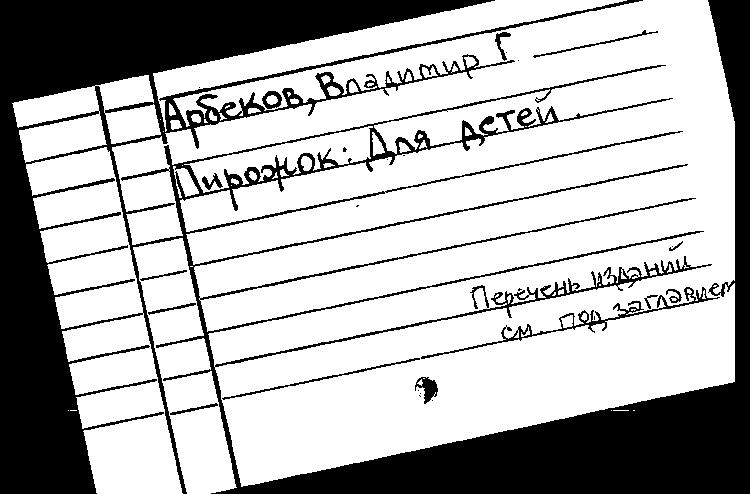 Арбеков, Владимир Г
Пирожок: Для детей.
Перечень изданий
см. под заглавием